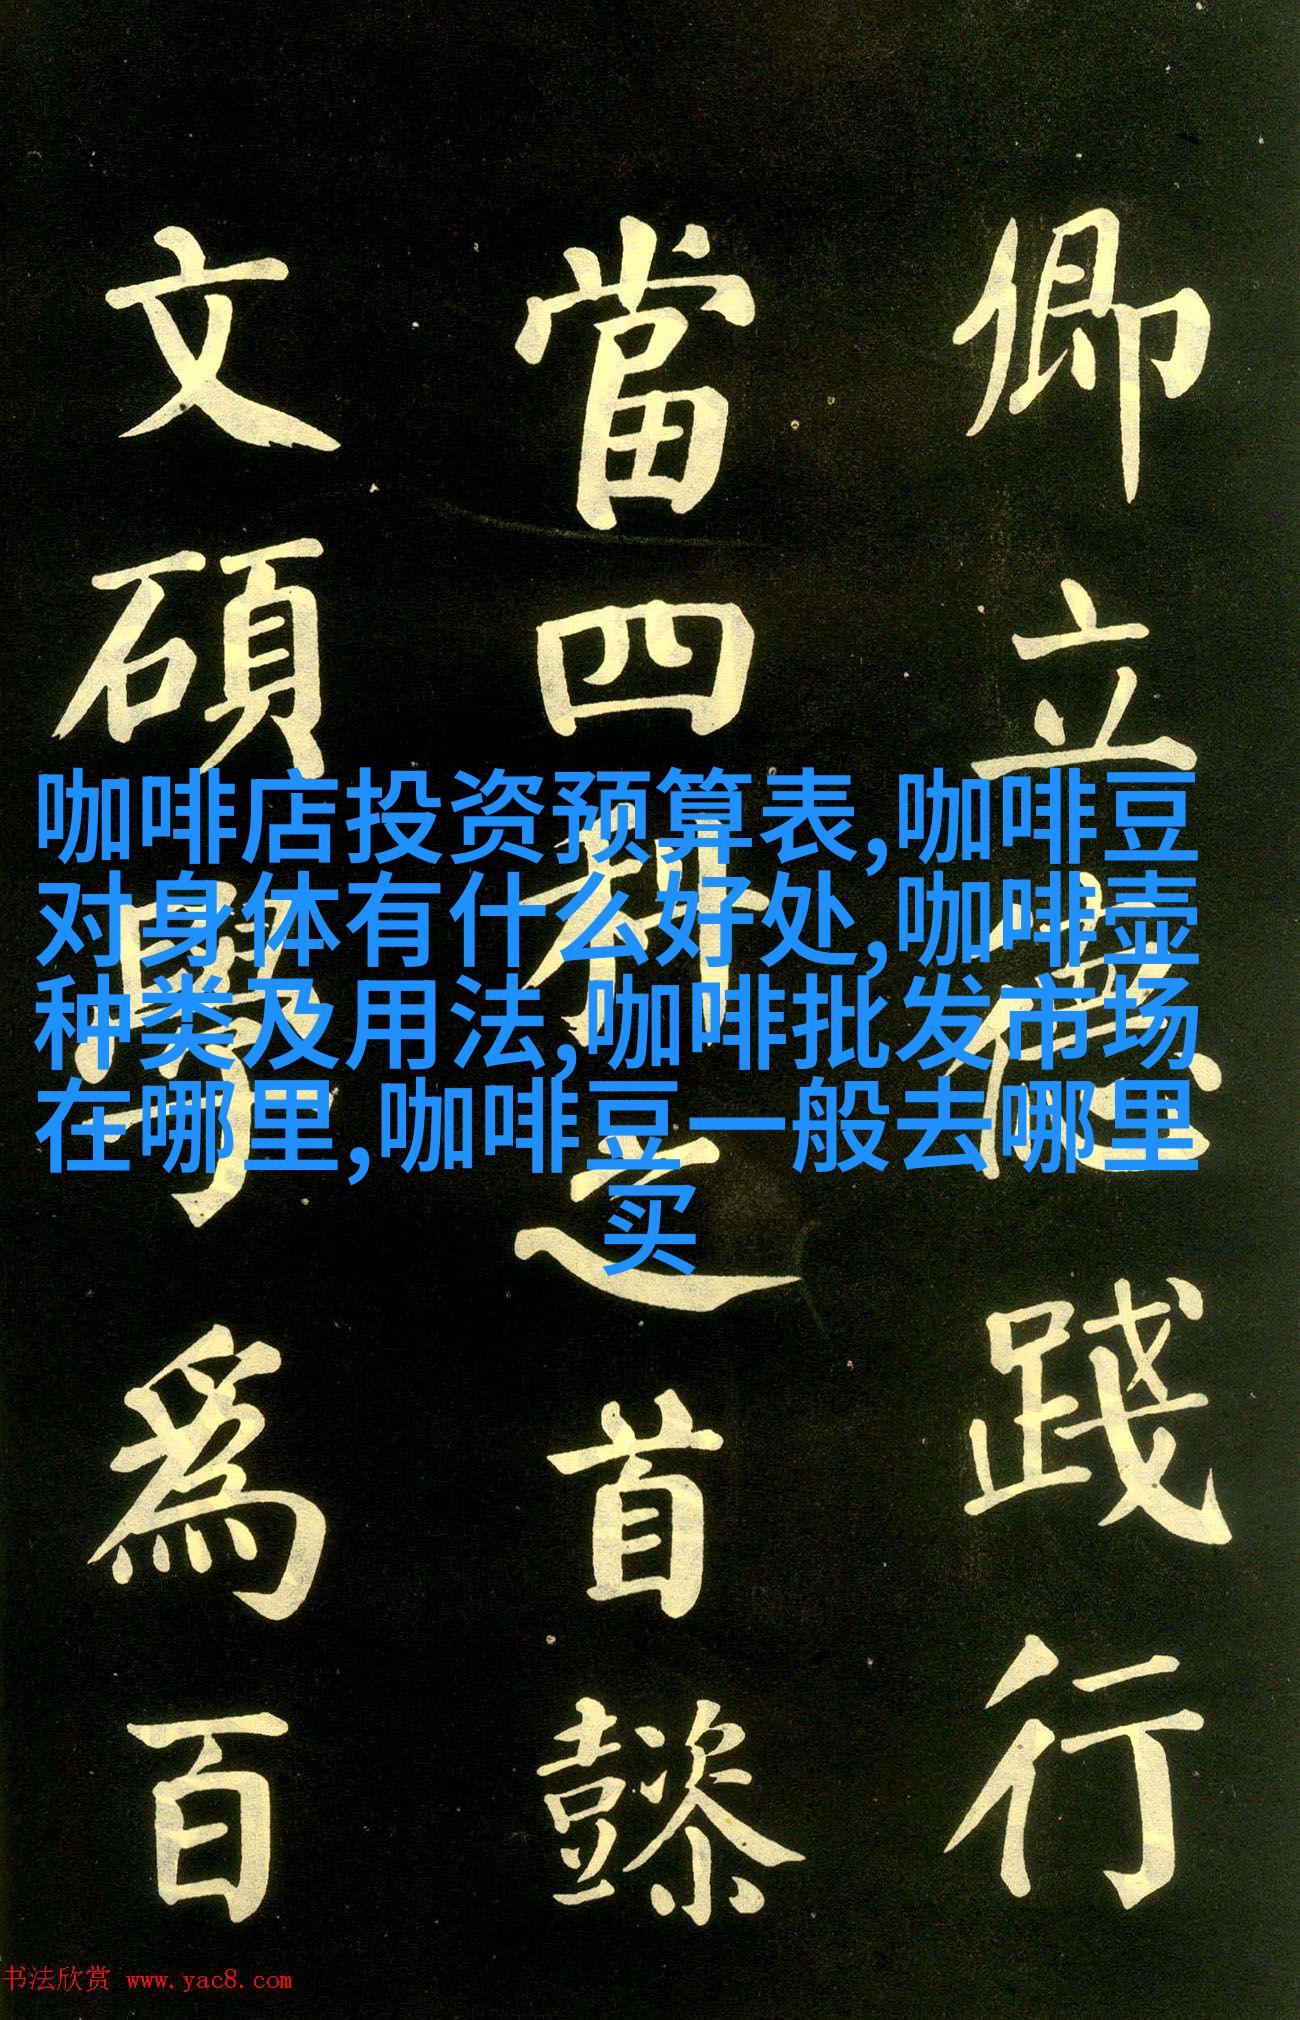 卿立德踐行
當四科之首懿
文碩學為百
咖啡店投资预算表,咖啡豆
对身体有什么好处,咖啡壶
种类及用法,咖啡批发市场
在哪里,咖啡豆一般去哪里
买
书法欣赏 www.yac8.com